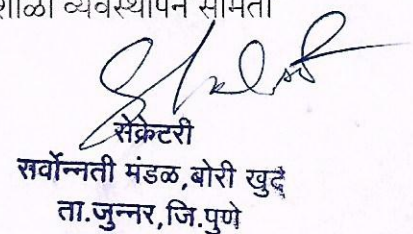 शाळा व्यवस्थापन समिती
सेक्रेटरी
सर्वोन्नती मंडळ,बोरी खुर्द
ता.जुन्नर,जि.पुणे